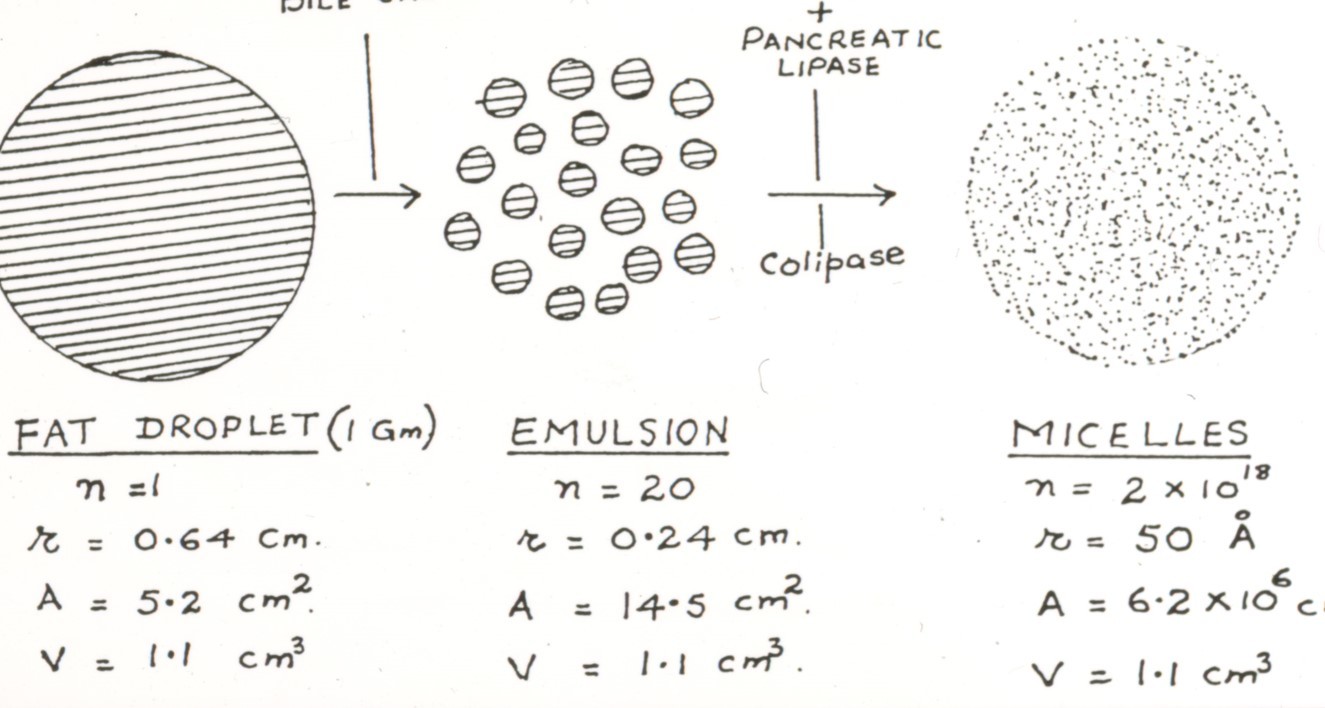 +
PANCREATIC
LIPASE
Colipase
FAT DROPLET (1 Gm)
n = 1
r = 0.64 cm.
A = 5.2 cm².
V = 1.1 cm³
EMULSION
n = 20
r = 0.24 cm.
A = 14.5 cm².
V = 1.1 cm³.
MICELLES
n = 2 × 10¹⁸
r = 50 Å
A = 6.2 × 10⁶
V = 1.1 cm³